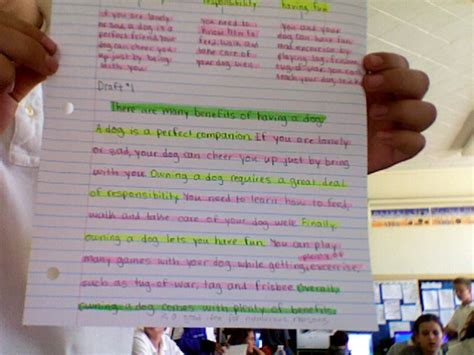 responsibility having fun
if you are lonely
or sad a dog is a
perfect friend. Your
dog can cheer you
up just by being
with you.
you need to
know how to
feed, walk and
take care of
your dog well.
you and your
dog can have fun
and exercise by
playing tag, frisbee
tug of war. you can
teach your dog
Draft #1
There are many benefits of having a dog.
A dog is a perfect companion. If you are lonely
or sad, your dog can cheer you up just by being
with you. Owning a dog requires a great deal
of responsibility. You need to learn how to feed,
walk and take care of your dog well. Finally,
owning a dog lets you have fun. You can play
many games with your dog, while getting exercise.
such as tug-of-war, tag and frisbee.
owning a dog comes with plenty of benefits.
is a good idea for numerous reasons